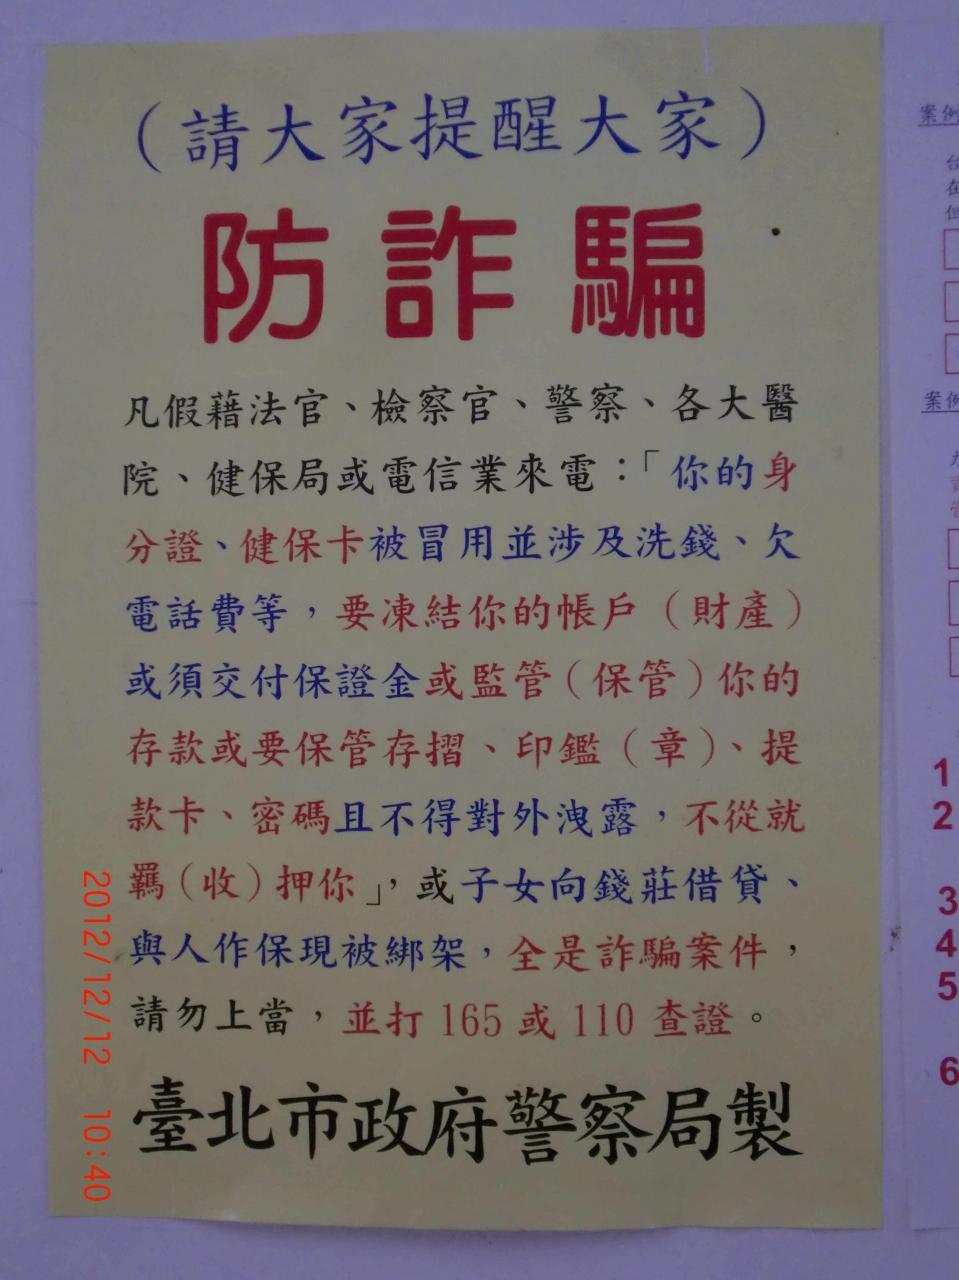 （請大家提醒大家）
防詐騙
凡假藉法官、檢察官、警察、各大醫
院、健保局或電信業來電：「你的身
分證、健保卡被冒用並涉及洗錢、欠
電話費等，要凍結你的帳戶（財產）
或須交付保證金或監管（保管）你的
存款或要保管存摺、印鑑（章）、提
款卡、密碼且不得對外洩露，不從就
羈（收）押你」，或子女向錢莊借貸、
與人作保現被綁架，全是詐騙案件，
請勿上當，並打 165 或 110 查證。
臺北市政府警察局製
2012/12/12 10:40
案例
在
但
案例
1
2
3
4
5
6